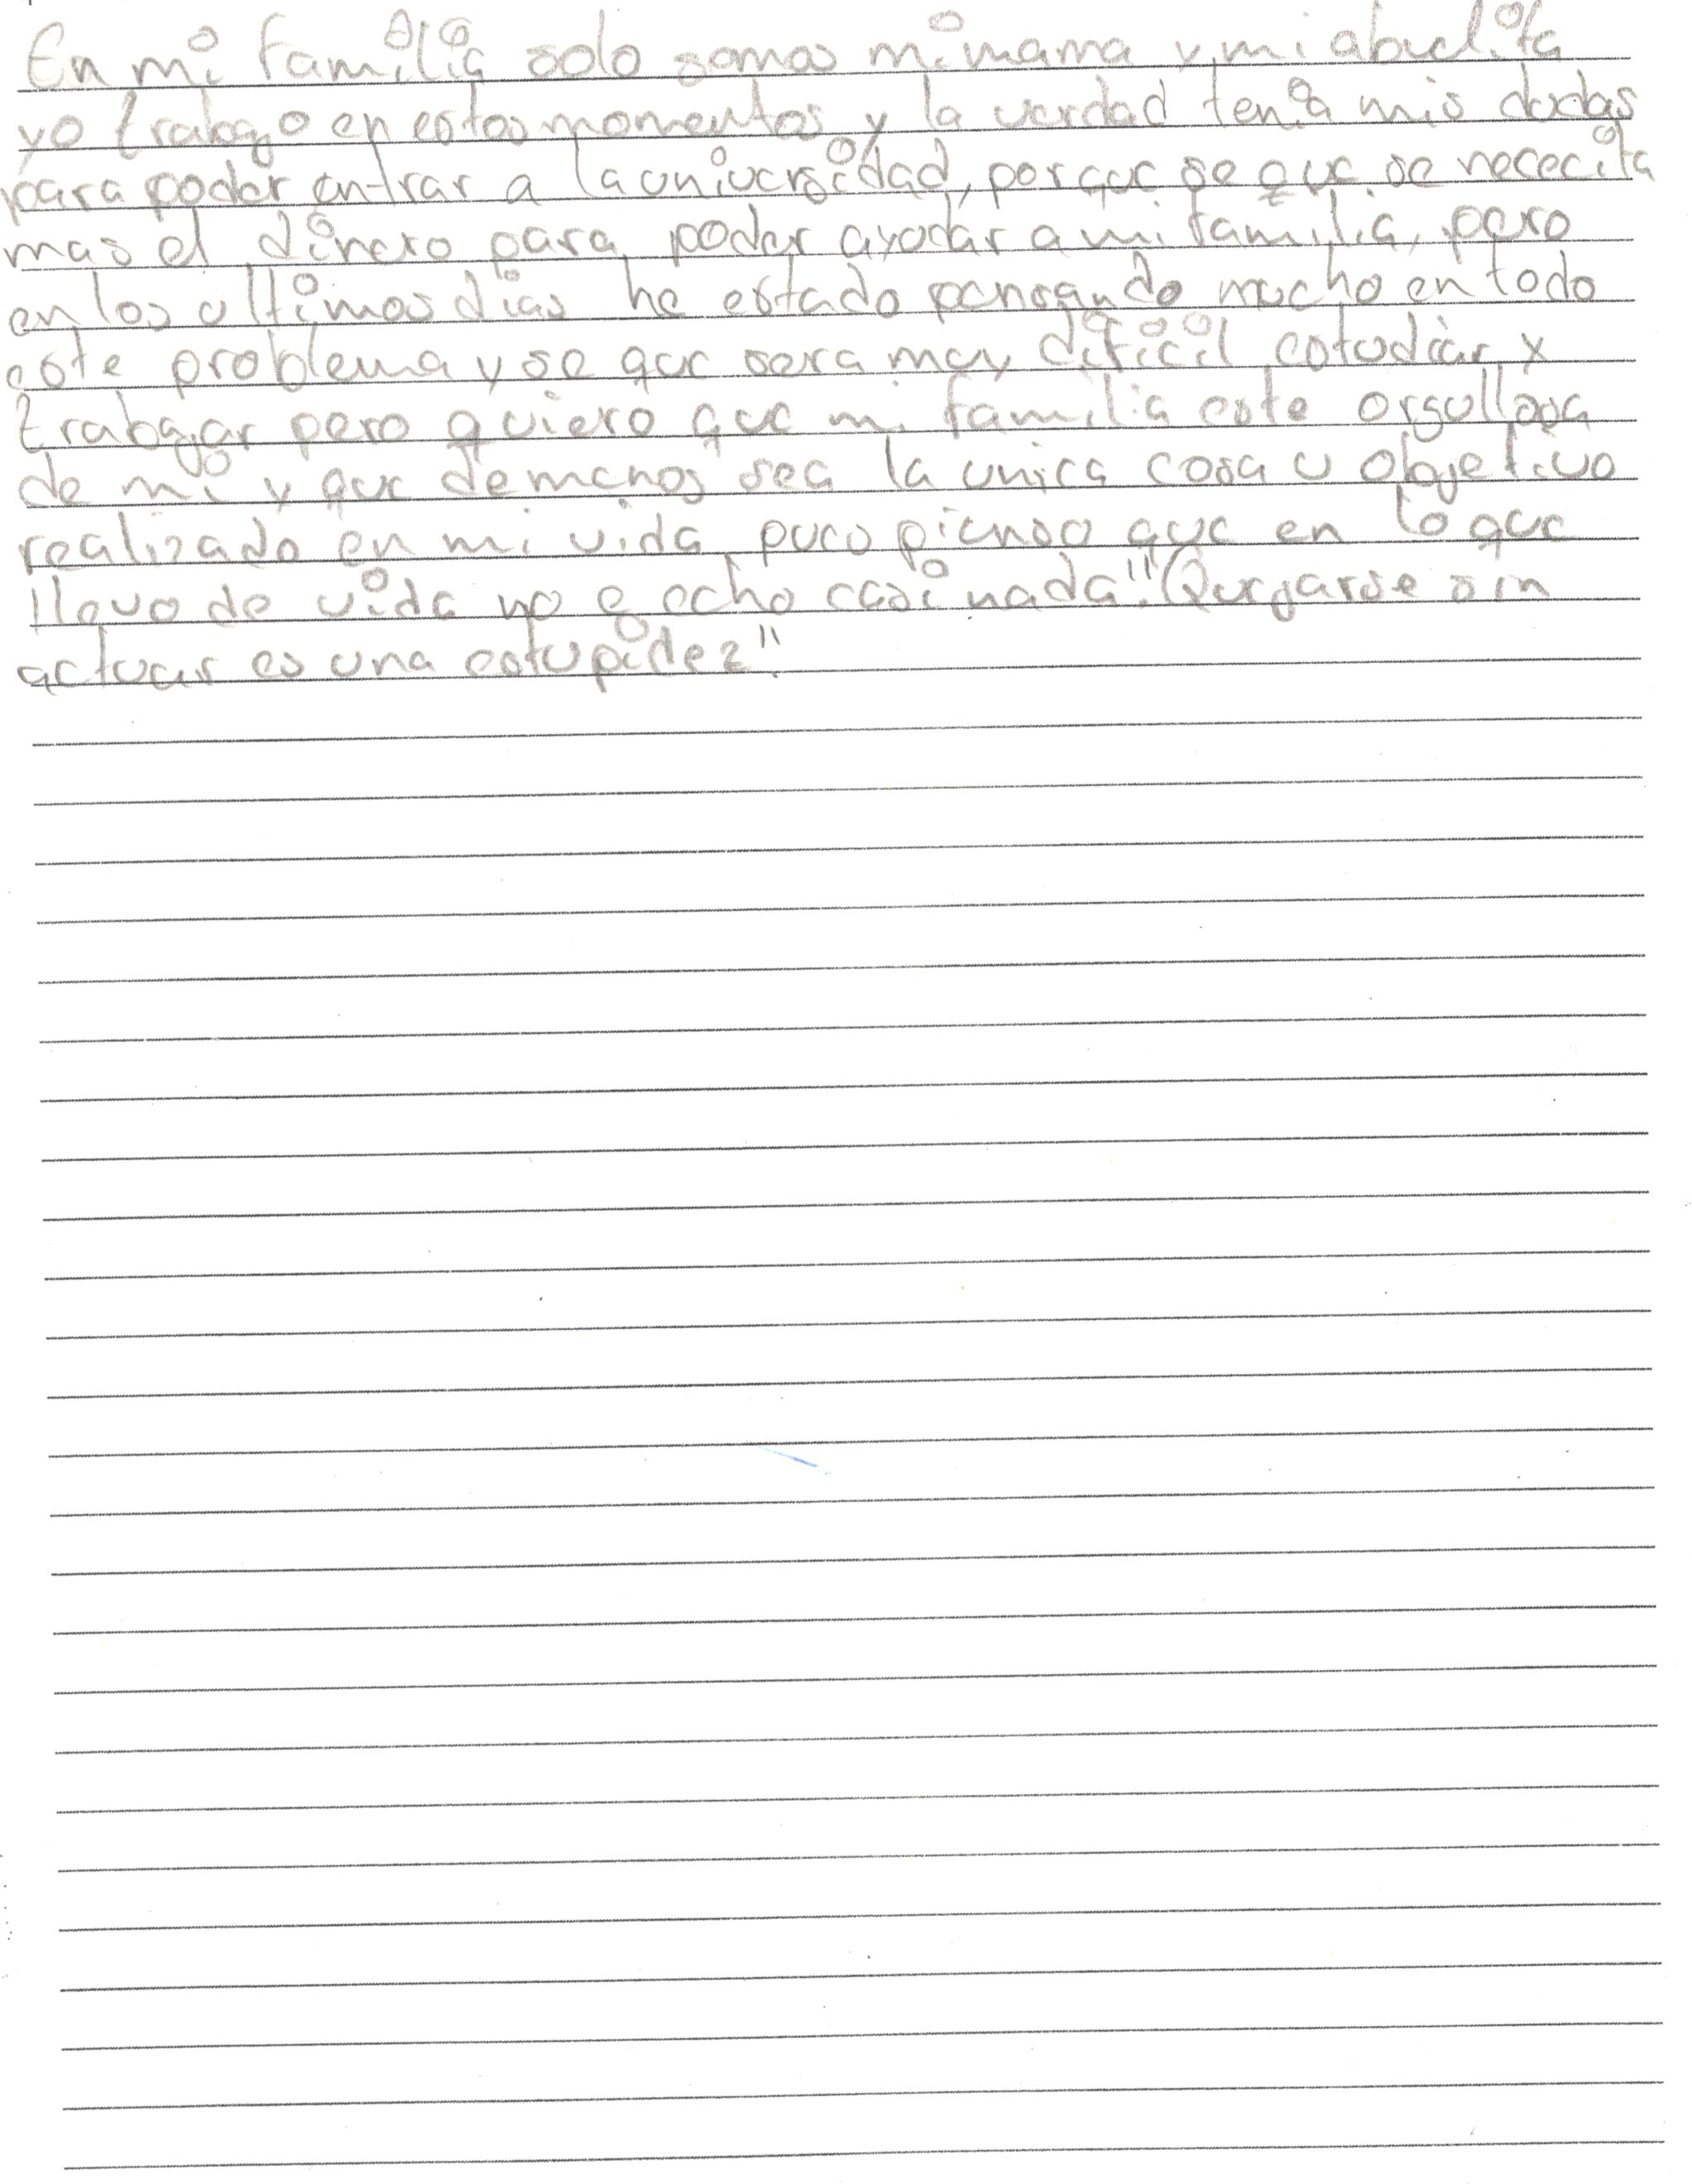 En mi familia solo somos mi mama y mi abuelita
yo trabago en estos momentos y la verdad tenia mis dudas
para poder entrar a la universidad, porque se que se nececita
mas el dinero para poder ayudar a mi familia, pero
en los ultimos dias he estado pensando mucho en todo
este problema y se que sera muy dificil estudiar y
trabajar pero quiero que mi familia este orgullosa
de mi y que demenos sea la unica cosa u objetivo
realizado en mi vida, pues pienso que en lo que
llevo de vida no e echo casi nada. "Quejarse sin
actuar es una estupidez".